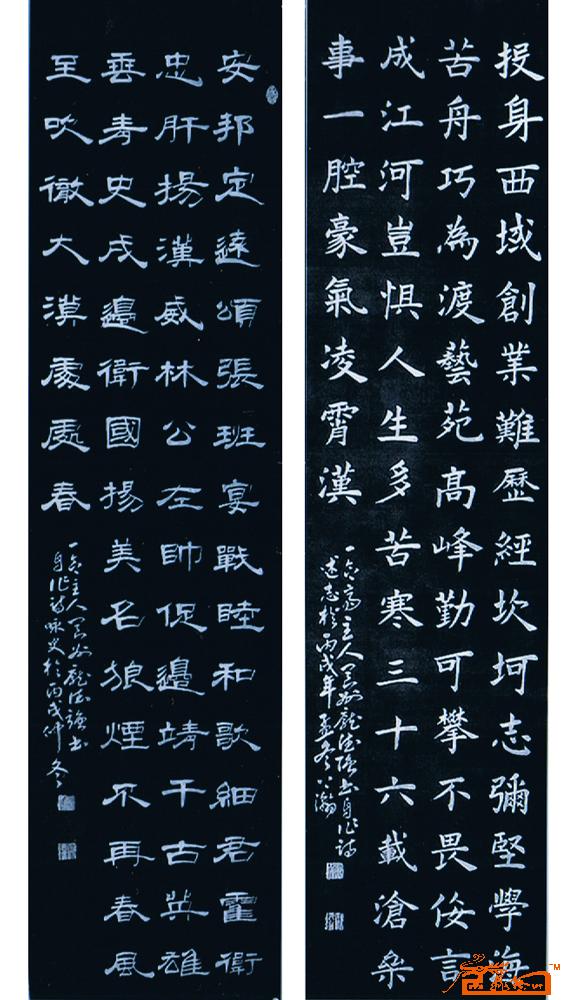 投身西域創業難歷經坎坷志彌堅學海
苦舟巧為渡藝苑高峰勤可攀不畏佞言
成江河豈惧人生多苦寒三十六載滄桑
事一腔豪氣凌霄漢
主人書自作詩
述志於丙戌年孟冬
安邦定遠頌張班宴戰睦和歌細君霍衛
忠肝揚漢威林公左帥促邊靖千古英雄
垂青史戍邊衛國揚美名狼煙不再春風
至吹徹大漠處處春
主人書
自作詩詠史於丙戌仲冬